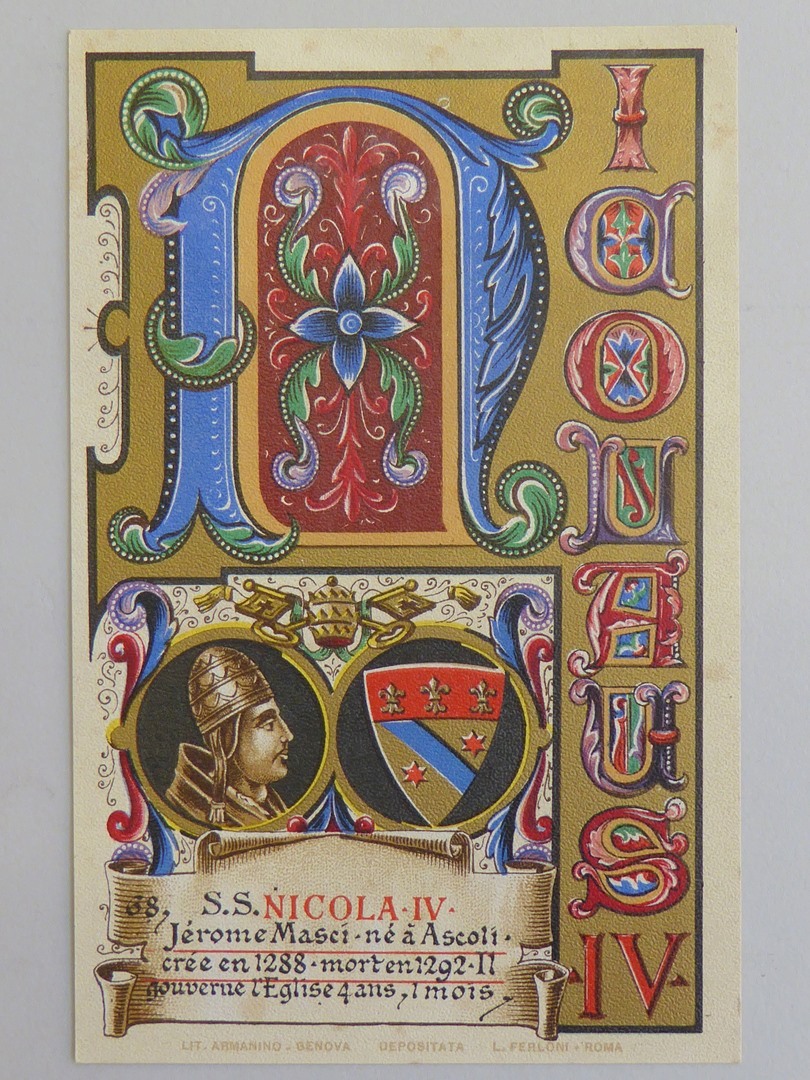 NICOLAUS
IV
68. S.S. NICOLA·IV·
Jérome Masci·né à Ascoli·
crée en 1288·mort en 1292·Il
gouverne l'Eglise 4 ans, 1 mois.
LIT. ARMANINO - GENOVA DEPOSITATA L. FERLONI - ROMA